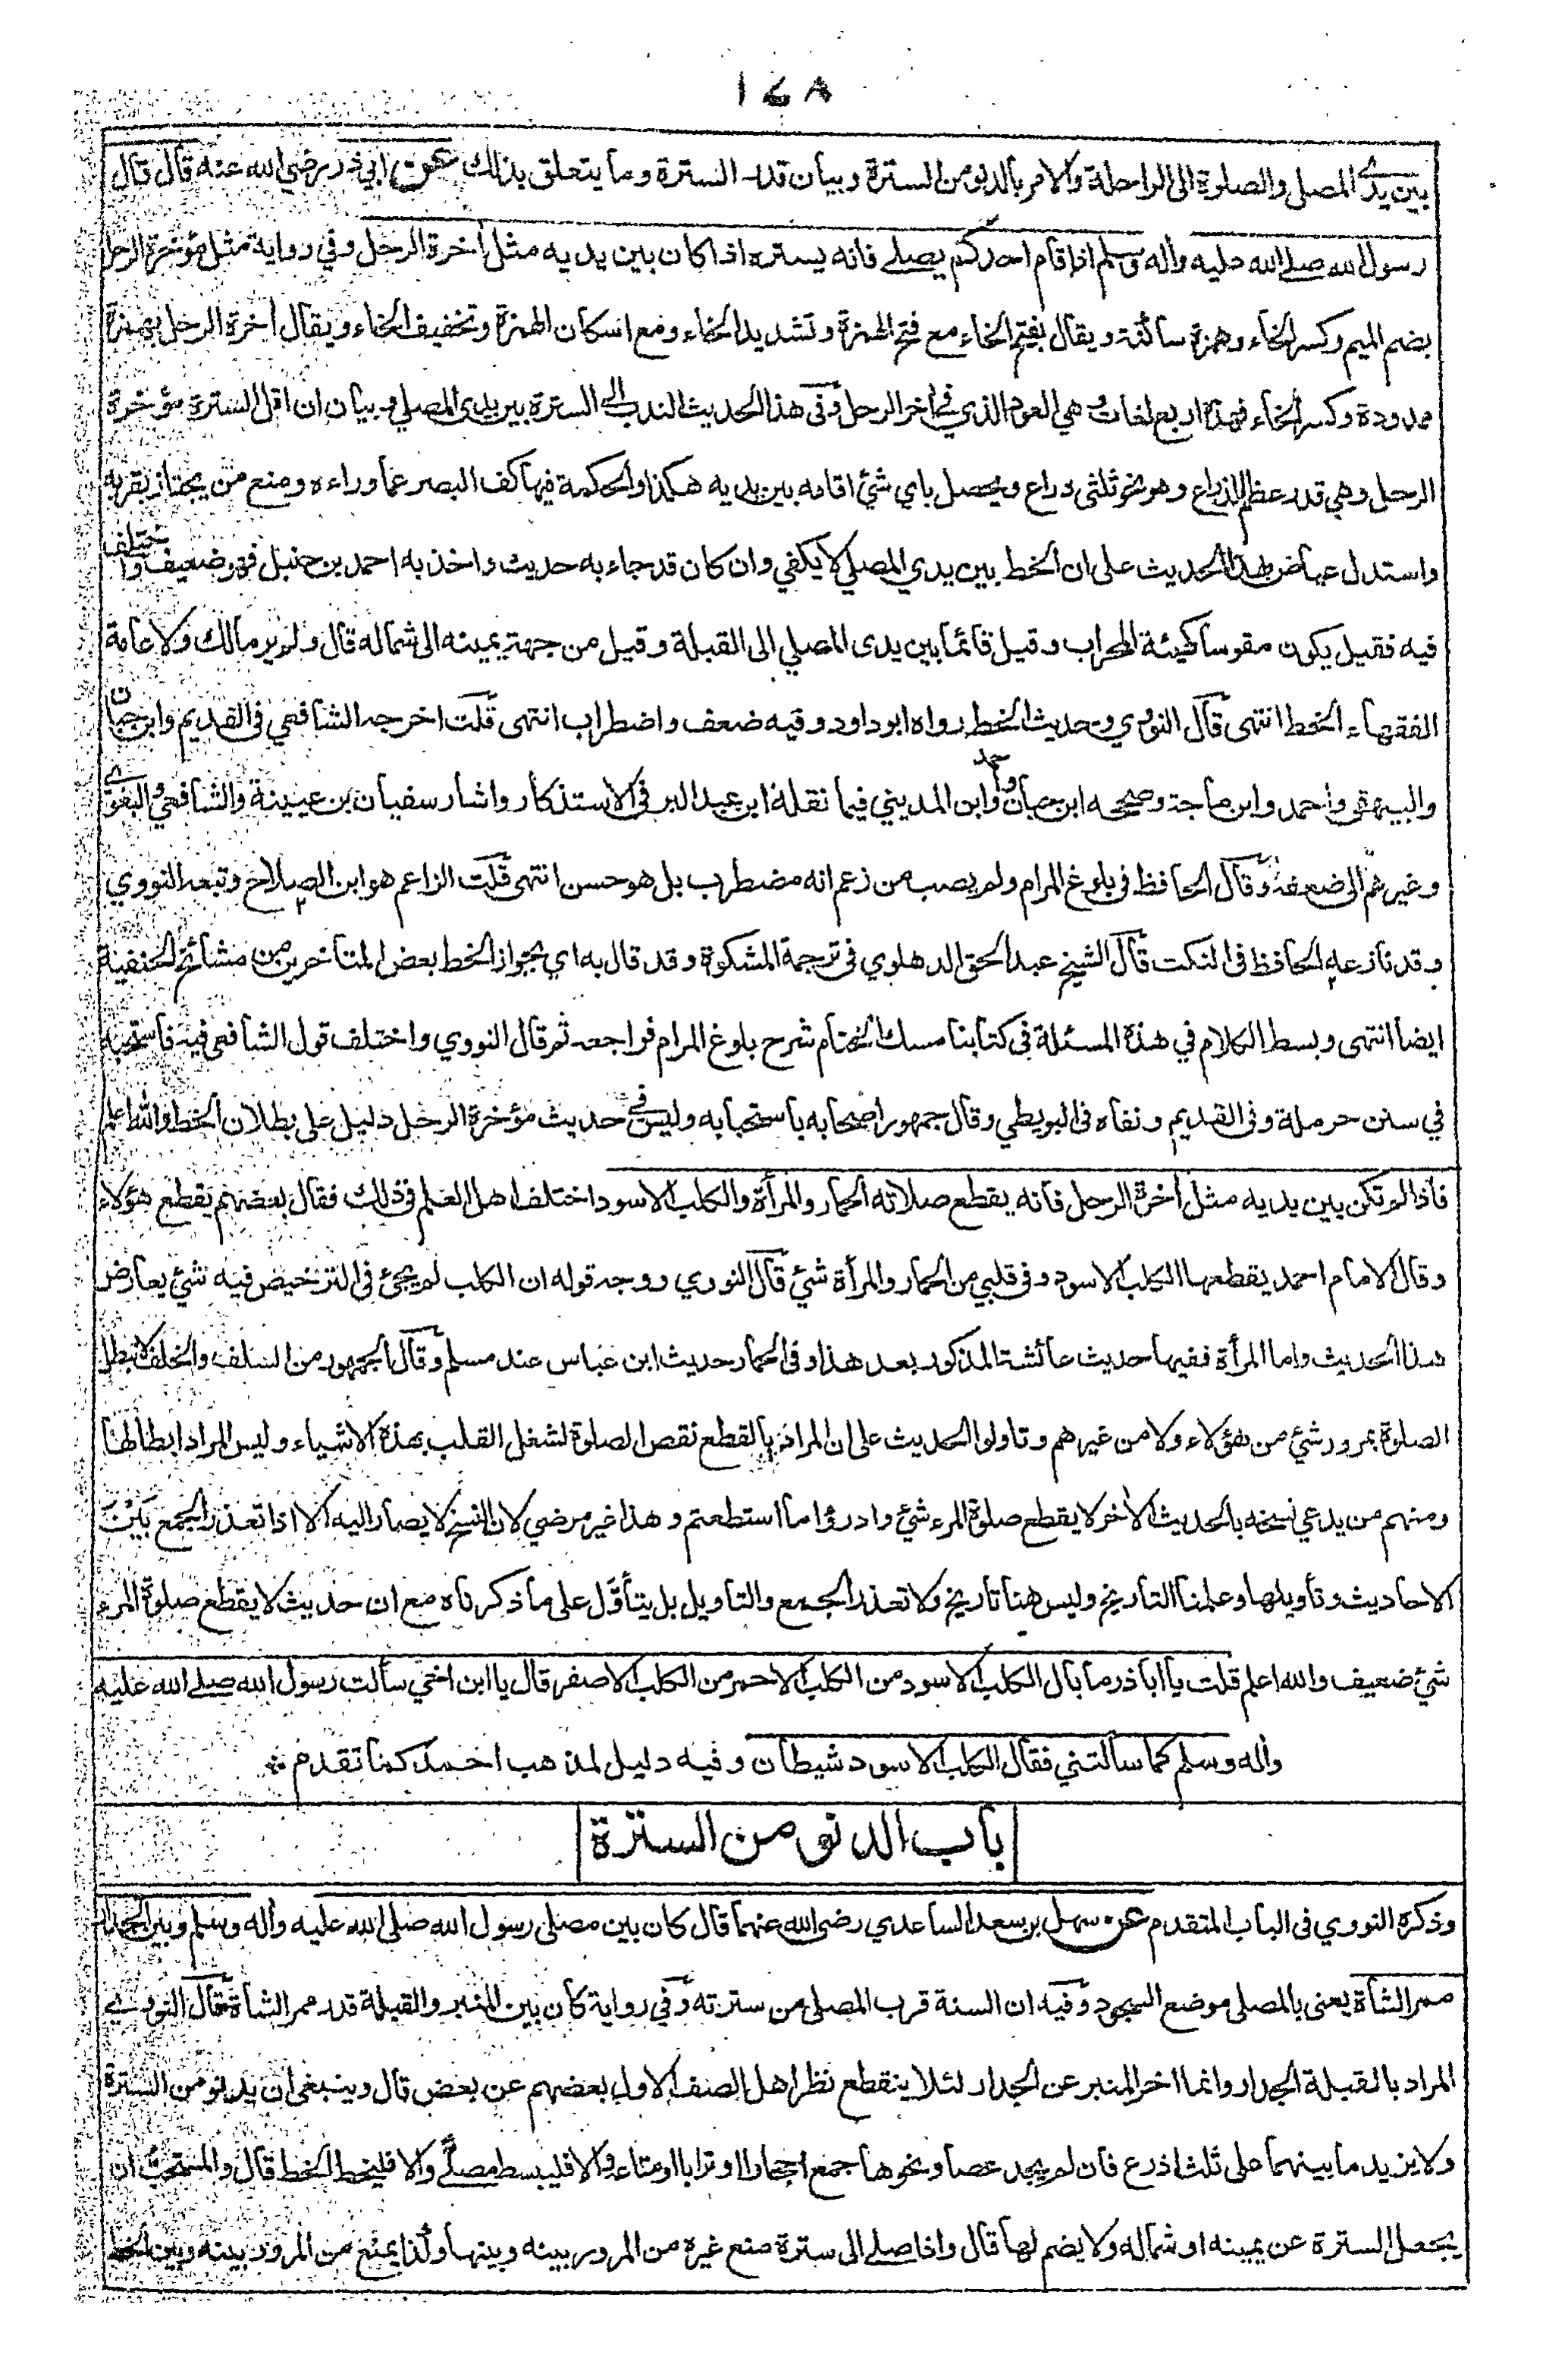 ١٤٨
بين يدي المصلي والصلوة الى الراحلة والامر بالدنو من السترة وبيان قدر السترة وما يتعلق بذلك عن ابي ذر رضي الله عنه قال قال
رسول الله صلى الله عليه وأله وسلم اذا قام احدكم يصلے فانه يستره اذا كان بين يديه مثل أخرة الرحل وفي رواية مثل مؤخرة الرحل
بضم الميم وكسر الخاء وهمزة ساكنة ويقال بفتح الخاء مع فتح الهمزة وتشديد الخاء ومع اسكان الهمزة وتخفيف الخاء ويقال أخرة الرحل بهمزة
ممدودة وكسر الخاء فهذه اربع لغات وهي العود الذي في أخر الرحل وفي هذا الحديث الندب الى السترة بين يدي المصلي وبيان ان اقل السترة مؤخرة
الرحل وهي قدر عظم الذراع وهو نحو ثلثى ذراع ويحصل باي شئ اقامه بين يديه هكذا والحكمة فيها كف البصر عما وراءه ومنع من يجتاز بقربه
واستدل عياض بهذا الحديث على ان الخط بين يدي المصلي لا يكفي وان كان قد جاء به حديث واخذ به احمد بن حنبل فهو ضعيف واختلف
فيه فقيل يكون مقوسا كهيئة المحراب وقيل قائما بين يدى المصلي الى القبلة وقيل من جهة يمينه الى شماله قال ولم ير مالك ولا عامة
الفقهاء الخط انتهى قال النووي وحديث الخط رواه ابو داود وفيه ضعف واضطراب انتهى قلت اخرجه الشافعي في القديم وابن حبان
والبيهقي واحمد وابن ماجة وصححه ابن حبان واحمد وابن المديني فيما نقله ابن عبد البر في الاستذكار واشار سفيان بن عيينة والشافعي والبغوي
وغيرهم الى ضعفه وقال الحافظ في بلوغ المرام ولم يصب من زعم انه مضطرب بل هو حسن انتهى قلت الزاعم هو ابن الصلاح وتبعه النووي
وقد نازعه الحافظ في النكت قال الشيخ عبد الحق الدهلوي في ترجمة المشكوة وقد قال به اي بجواز الخط بعض المتأخرين من مشائخ الحنفية
ايضا انتهى وبسط الكلام في هذه المسئلة في كتابنا مسك الختام شرح بلوغ المرام فراجعه ثم قال النووي واختلف قول الشافعي فيه فاستحبه
في سنن حرملة وفي القديم ونفاه في البويطي وقال جمهور اصحابه باستحبابه وليس في حديث مؤخرة الرحل دليل على بطلان الخط والله اعلم
فاذا لم تكن بين يديه مثل أخرة الرحل فانه يقطع صلاته الحمار والمرأة والكلب الاسود اختلف اهل العلم في ذلك فقال بعضهم يقطع هؤلاء
وقال الامام احمد يقطعها الكلب الاسود وفي قلبي من الحمار والمرأة شئ قال النووي ووجه قوله ان الكلب لم يجئ في الترخيص فيه شئ يعارض
هذا الحديث واما المرأة ففيها حديث عائشة المذكور بعد هذا وفي الحمار حديث ابن عباس عند مسلم وقال الجمهور من السلف والخلف لا تبطل
الصلوة بمرور شئ من هؤلاء ولا من غيرهم وتاولوا الحديث على ان المراد بالقطع نقص الصلوة لشغل القلب بهذه الاشياء وليس المراد ابطالها
ومنهم من يدعي نسخه بالحديث الأخر لا يقطع صلوة المرء شئ وادرؤا ما استطعتم وهذا غير مرضي لان النسخ لا يصار اليه الا اذا تعذر الجمع بَيْنَ
الاحاديث وتأويلها وعلمنا التاريخ وليس هنا تاريخ ولا تعذر الجمع والتأويل بل يتأول على ما ذكرناه مع ان حديث لا يقطع صلوة المرء
شئ ضعيف والله اعلم قلت يا أبا ذر ما بال الكلب الاسود من الكلب الاحمر من الكلب الاصفر قال يا ابن اخي سألت رسول الله صلے الله عليه
وأله وسلم كما سألتني فقال الكلب الاسود شيطان وفيه دليل لمذهب احمد كما تقدم
باب الدنو من السترة
وذكره النووي في الباب المتقدم عن سهل بن سعد الساعدي رضي الله عنهما قال كان بين مصلى رسول الله صلى الله عليه وأله وسلم وبين الجدار
ممر الشاة يعنى بالمصلى موضع السجود وفيه ان السنة قرب المصلى من سترته وفي رواية كان بين المنبر والقبلة قدر ممر الشاة قال النووے
المراد بالقبلة الجدار وانما اخر المنبر عن الجدار لئلا ينقطع نظر اهل الصف الاول بعضهم عن بعض قال وينبغي ان يدنو من السترة
ولا يزيد ما بينهما على ثلث اذرع فان لم يجد عصا ونحوها جمع احجارا او ترابا او متاعه والا فليبسط مصلّے والا فليخط الخط قال والمستحب ان
يجعل السترة عن يمينه او شماله ولا يضم لها قال واذا صلے الى سترة منع غيره من المرور بينه وبينها وكذا يمنع من المرور بينه وبين الخط